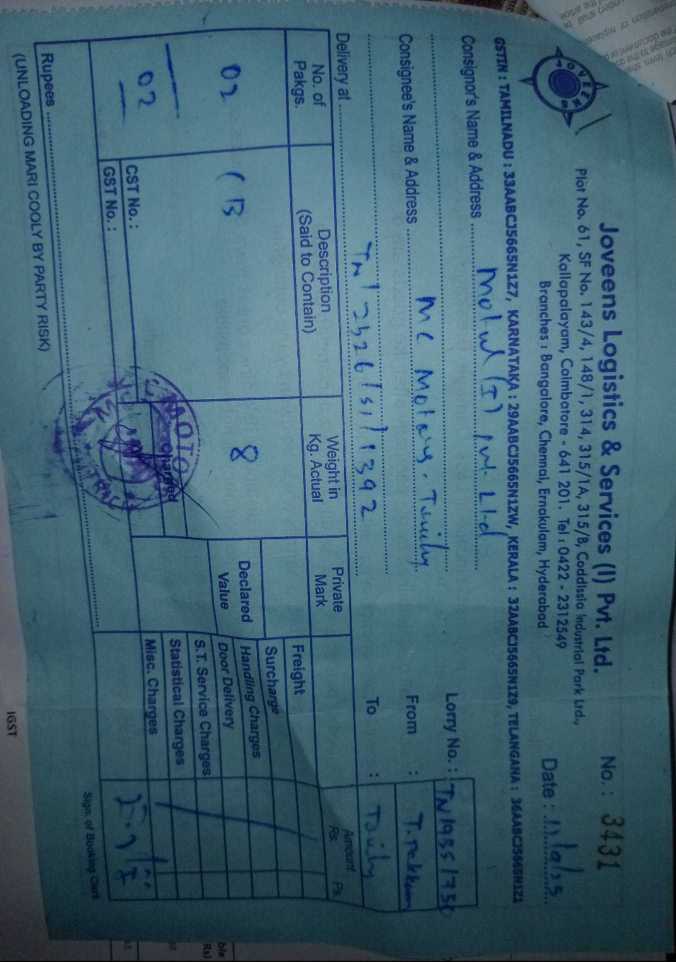 JOVEENS
Joveens Logistics & Services (I) Pvt. Ltd.
No. : 3431
Plot No. 61, SF No. 143/4, 148/1, 314, 315/1A, 315/B, Coddissia Industrial Park Ltd.,
Kallapalayam, Coimbatore - 641 201. Tel : 0422 - 2312549
Branches : Bangalore, Chennai, Ernakulam, Hyderabad
Date :
GSTIN : TAMILNADU : 33AABCJ5665N1Z7, KARNATAKA : 29AABCJ5665N1ZW, KERALA : 32AABCJ5665N1Z9, TELANGANA : 36AABCJ5665N1Z1
Consignor's Name & Address Motul (I) Pvt. Ltd
Lorry No. :
Consignee's Name & Address MC Motors.
From :
TN/2526/SI/1392
To :
Delivery at
No. of Pakgs.
Description (Said to Contain)
Weight in Kg. Actual
Private Mark
Amount
Rs. Ps.
02
CB
8
Declared Value
Freight
Surcharge
Handling Charges
Door Delivery
S.T. Service Charges
Statistical Charges
Misc. Charges
02
Charged
CST No. :
GST No. :
Rupees
Sign. of Booking Clerk
(UNLOADING MARI COOLY BY PARTY RISK)
IGST